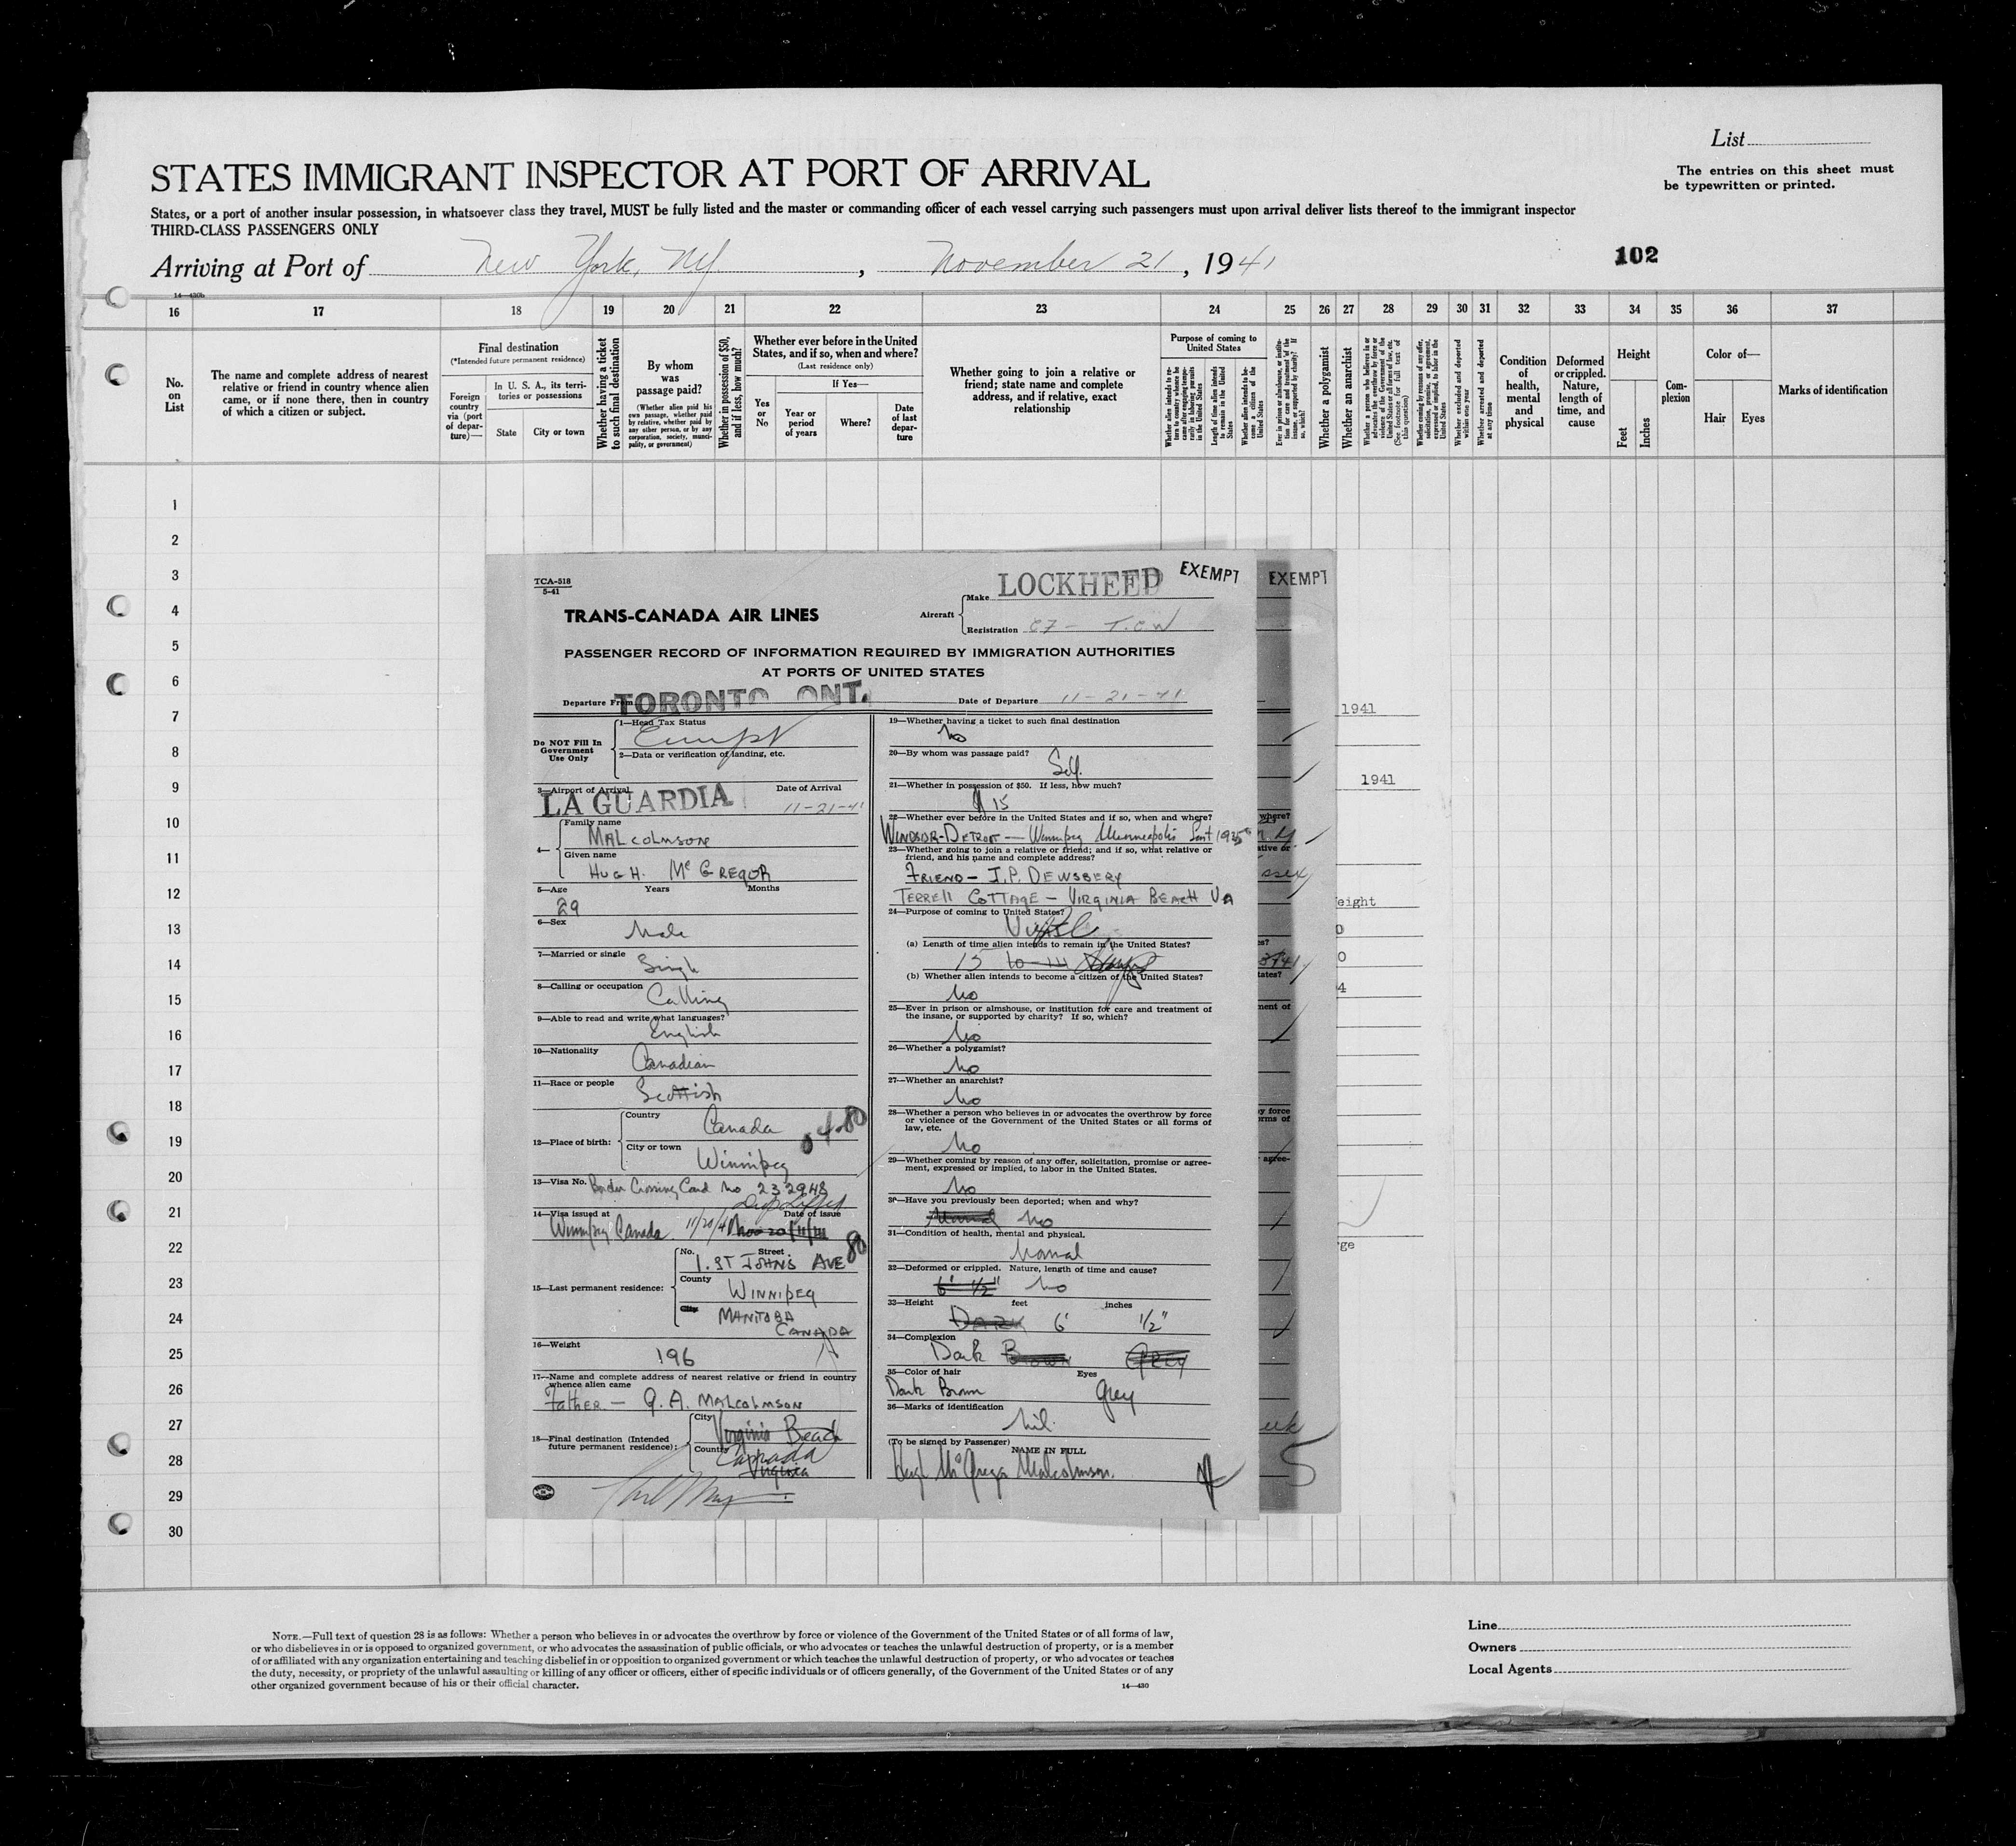 List
STATES IMMIGRANT INSPECTOR AT PORT OF ARRIVAL
The entries on this sheet must
be typewritten or printed.
States, or a port of another insular possession, in whatsoever class they travel, MUST be fully listed and the master or commanding officer of each vessel carrying such passengers must upon arrival deliver lists thereof to the immigrant inspector
THIRD-CLASS PASSENGERS ONLY
Arriving at Port of New York, NY, November 21, 1941
102
14—430b
16 17 18 19 20 21 22 23 24 25 26 27 28 29 30 31 32 33 34 35 36 37
No. on List
The name and complete address of nearest
relative or friend in country whence alien
came, or if none there, then in country
of which a citizen or subject.
Final destination
(*Intended future permanent residence)
Foreign country via (port of departure)—
In U. S. A., its territories or possessions
State
City or town
Whether having a ticket to such final destination
By whom was passage paid?
(Whether alien paid his own passage, whether paid by relative, whether paid by any other person, or by any corporation, society, municipality, or government)
Whether in possession of $50, and if less, how much?
Whether ever before in the United
States, and if so, when and where?
(Last residence only)
Yes or No
If Yes—
Year or period of years
Where?
Date of last departure
Whether going to join a relative or
friend; state name and complete
address, and if relative, exact
relationship
Purpose of coming to
United States
Whether alien intends to return to country whence he came after engaging temporarily in laboring pursuits in the United States
Length of time alien intends to remain in the United States
Whether alien intends to become a citizen of the United States
Ever in prison or almshouse, or institution for care and treatment of the insane, or supported by charity? If so, which?
Whether a polygamist
Whether an anarchist
Whether a person who believes in or advocates the overthrow by force or violence of the Government of the United States or all forms of law, etc. (See footnote for full text of this question)
Whether coming by reasons of any offer, solicitation, promise, or agreement, expressed or implied, to labor in the United States
Whether excluded and deported within one year
Whether arrested and deported at any time
Condition of health, mental and physical
Deformed or crippled. Nature, length of time, and cause
Height
Feet
Inches
Complexion
Color of—
Hair
Eyes
Marks of identification
1
2
3
4
5
6
7
8
9
10
11
12
13
14
15
16
17
18
19
20
21
22
23
24
25
26
27
28
29
30
TCA-518
5-41
TRANS-CANADA AIR LINES
Aircraft
Make LOCKHEED
EXEMPT
EXEMPT
Registration CF - T.C.W
PASSENGER RECORD OF INFORMATION REQUIRED BY IMMIGRATION AUTHORITIES
AT PORTS OF UNITED STATES
Departure From TORONTO ONT.
Date of Departure 11-21-41
Do NOT Fill In
Government
Use Only
1—Head Tax Status
Exempt
2—Data or verification of landing, etc.
3—Airport of Arrival
Date of Arrival
LA GUARDIA 11-21-41
4—
Family name
MALCOLMSON
Given name
HUGH. McGREGOR
5—Age Years Months
29
6—Sex
Male
7—Married or single
Single
8—Calling or occupation
Calling
9—Able to read and write what languages?
English
10—Nationality
Canadian
11—Race or people
Scottish
12—Place of birth:
Country
Canada
City or town
Winnipeg
13—Visa No. Border Crossing Card No 232948
14—Visa issued at Date of issue
Winnipeg Canada. 11/20/41
15—Last permanent residence:
No. Street
1. ST JOHNS AVE
80
County
WINNIPEG
City
MANITOBA
CANADA
16—Weight
196
17—Name and complete address of nearest relative or friend in country
whence alien came
Father — G. A. MALCOLMSON
18—Final destination (Intended
future permanent residence):
City
Virginia Beach
Country
Canada
Virginia
19—Whether having a ticket to such final destination
No
20—By whom was passage paid?
Self.
21—Whether in possession of $50. If less, how much?
$15
22—Whether ever before in the United States and if so, when and where?
WINDSOR-DETROIT — Winnipeg Minneapolis
23—Whether going to join a relative or friend; and if so, what relative or
friend, and his name and complete address?
FRIEND — J.P. DEWSBERY
TERRELL COTTAGE — VIRGINIA BEACH VA
24—Purpose of coming to United States?
(a) Length of time alien intends to remain in the United States?
15 10-14 days
(b) Whether alien intends to become a citizen of the United States?
No
25—Ever in prison or almshouse, or institution for care and treatment of
the insane, or supported by charity? If so, which?
No
26—Whether a polygamist?
No
27—Whether an anarchist?
No
28—Whether a person who believes in or advocates the overthrow by force
or violence of the Government of the United States or all forms of
law, etc.
No
29—Whether coming by reason of any offer, solicitation, promise or agree-
ment, expressed or implied, to labor in the United States.
No
30—Have you previously been deported; when and why?
No
31—Condition of health, mental and physical.
Normal
32—Deformed or crippled. Nature, length of time and cause?
6' 1/2" No
33—Height feet inches
DARK 6' 1/2"
34—Complexion
Dark Brown Grey
35—Color of hair Eyes
Dark Brown Grey
36—Marks of identification
Nil.
(To be signed by Passenger)
NAME IN FULL
Hugh McGregor Malcolmson.
1941
1941
eight
NOTE.—Full text of question 28 is as follows: Whether a person who believes in or advocates the overthrow by force or violence of the Government of the United States or of all forms of law,
or who disbelieves in or is opposed to organized government, or who advocates the assassination of public officials, or who advocates or teaches the unlawful destruction of property, or is a member
of or affiliated with any organization entertaining and teaching disbelief in or opposition to organized government or which teaches the unlawful destruction of property, or who advocates or teaches
the duty, necessity, or propriety of the unlawful assaulting or killing of any officer or officers, either of specific individuals or of officers generally, of the Government of the United States or of any
other organized government because of his or their official character.
14—430
Line
Owners
Local Agents